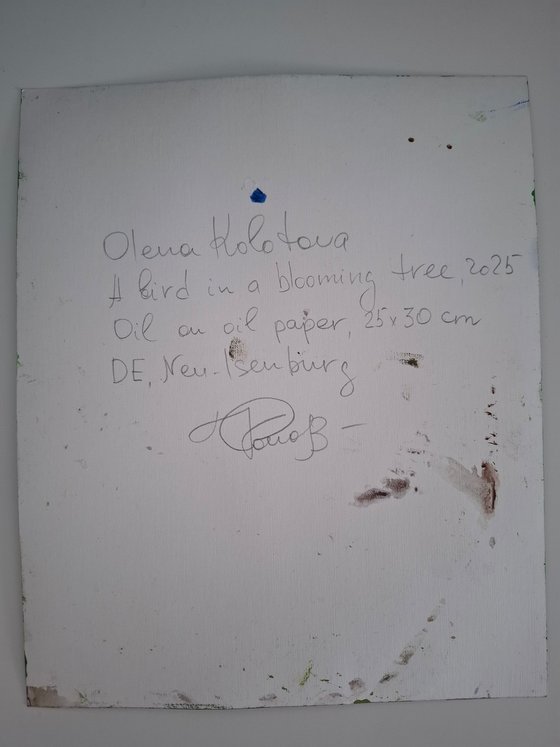 Olena Kolotova
A bird in a blooming tree, 2025
Oil on oil paper, 25x30 cm
DE, Neu-Isenburg